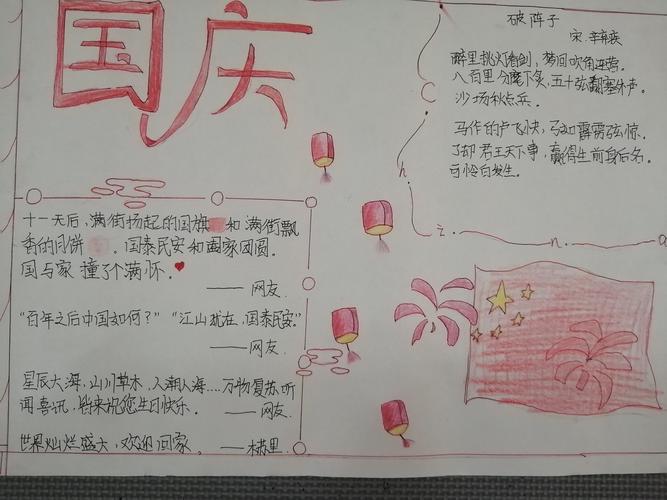 国庆
破阵子
宋.辛弃疾
醉里挑灯看剑，梦回吹角连营。
八百里分麾下炙，五十弦翻塞外声。
沙场秋点兵。
马作的卢飞快，弓如霹雳弦惊。
了却君王天下事，赢得生前身后名。
可怜白发生。
C
h
i
n
a
十一天后，满街扬起的国旗 和满街飘
香的月饼 。国泰民安和阖家团圆。
国与家 撞了个满怀。
——网友.
“百年之后中国如何？”“江山犹在，国泰民安。”
——网友.
星辰大海，山川草木，人潮人海....万物复苏.听
闻喜讯，皆来祝您生日快乐。——网友.
世界灿烂盛大，欢迎回家。——赫里.